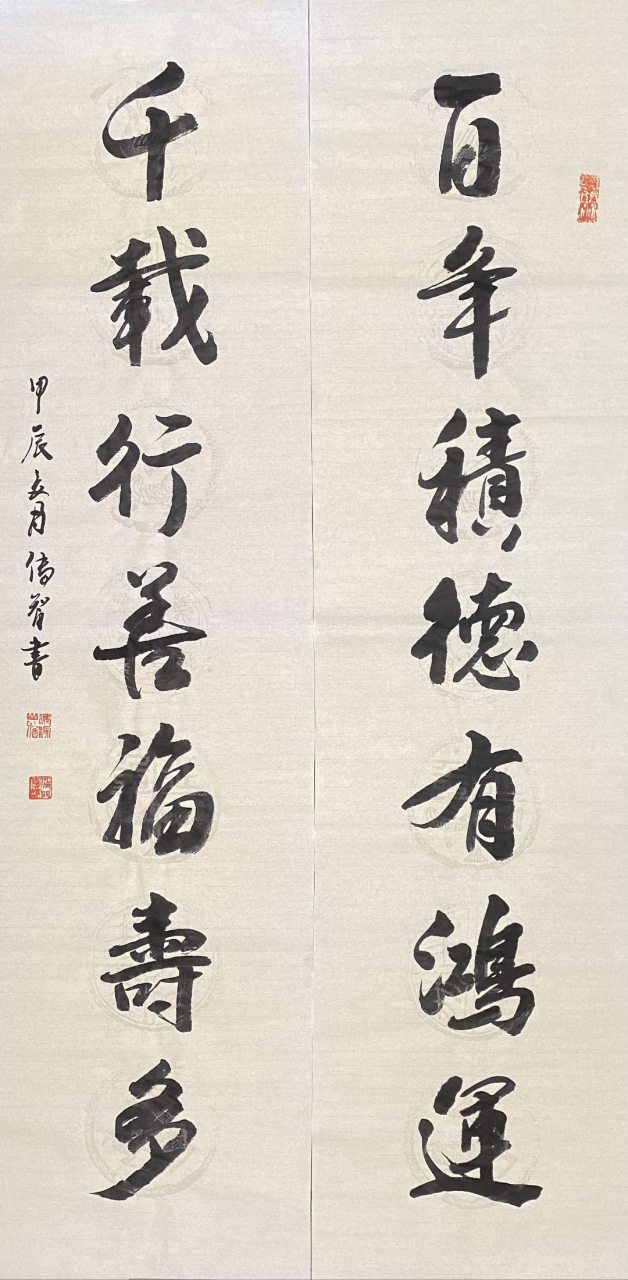 百年積德有鴻運
千載行善福壽多
甲辰 月 智書